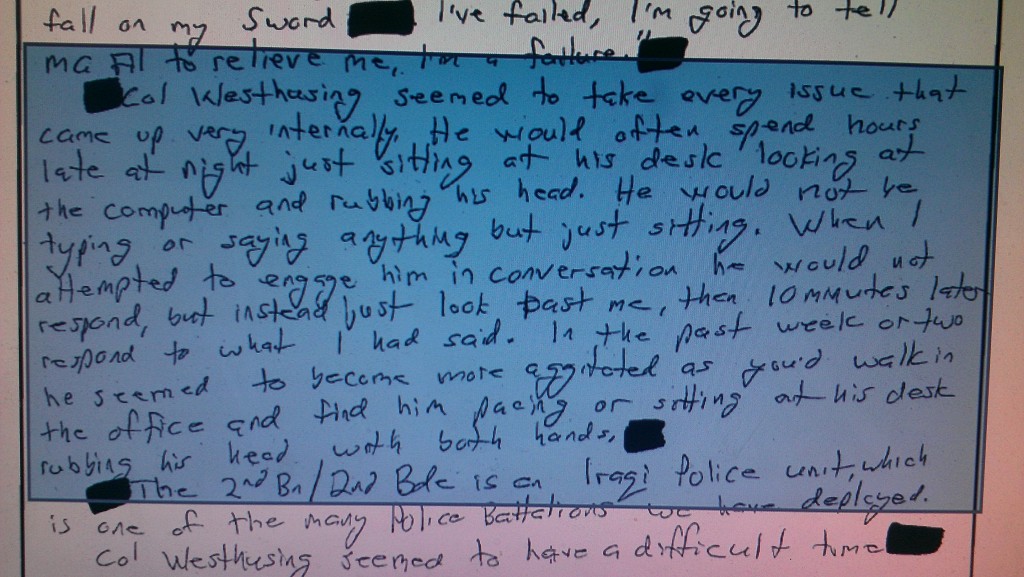 fall on my Sword I've failed, I'm going to tell
MG Al to relieve me, I'm a failure."
Col Westhusing seemed to take every issue that
came up very internally. He would often spend hours
late at night just sitting at his desk looking at
the computer and rubbing his head. He would not be
typing or saying anything but just sitting. When I
attempted to engage him in conversation he would not
respond, but instead just look past me, then 10 minutes later
respond to what I had said. In the past week or two
he seemed to become more aggitated as you'd walk in
the office and find him pacing or sitting at his desk
rubbing his head with both hands.
The 2nd Bn/2nd Bde is an Iraqi Police unit, which
is one of the many Police Battalions we have deployed.
Col Westhusing seemed to have a difficult time